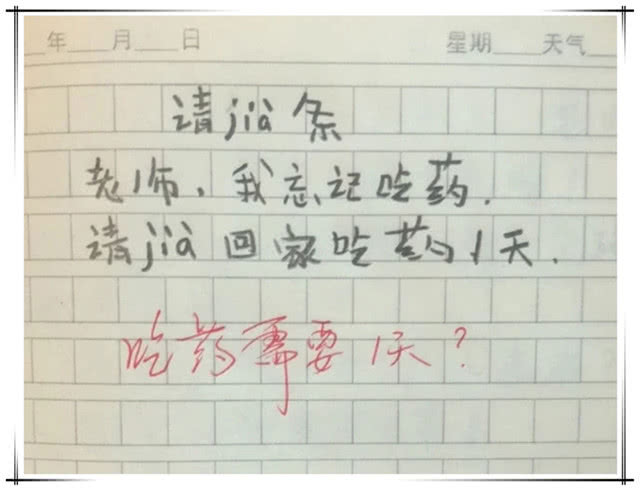 年 月 日 星期 天气
请jià条
老师，我忘记吃药.
请jià回家吃药1天.
吃药需要1天?